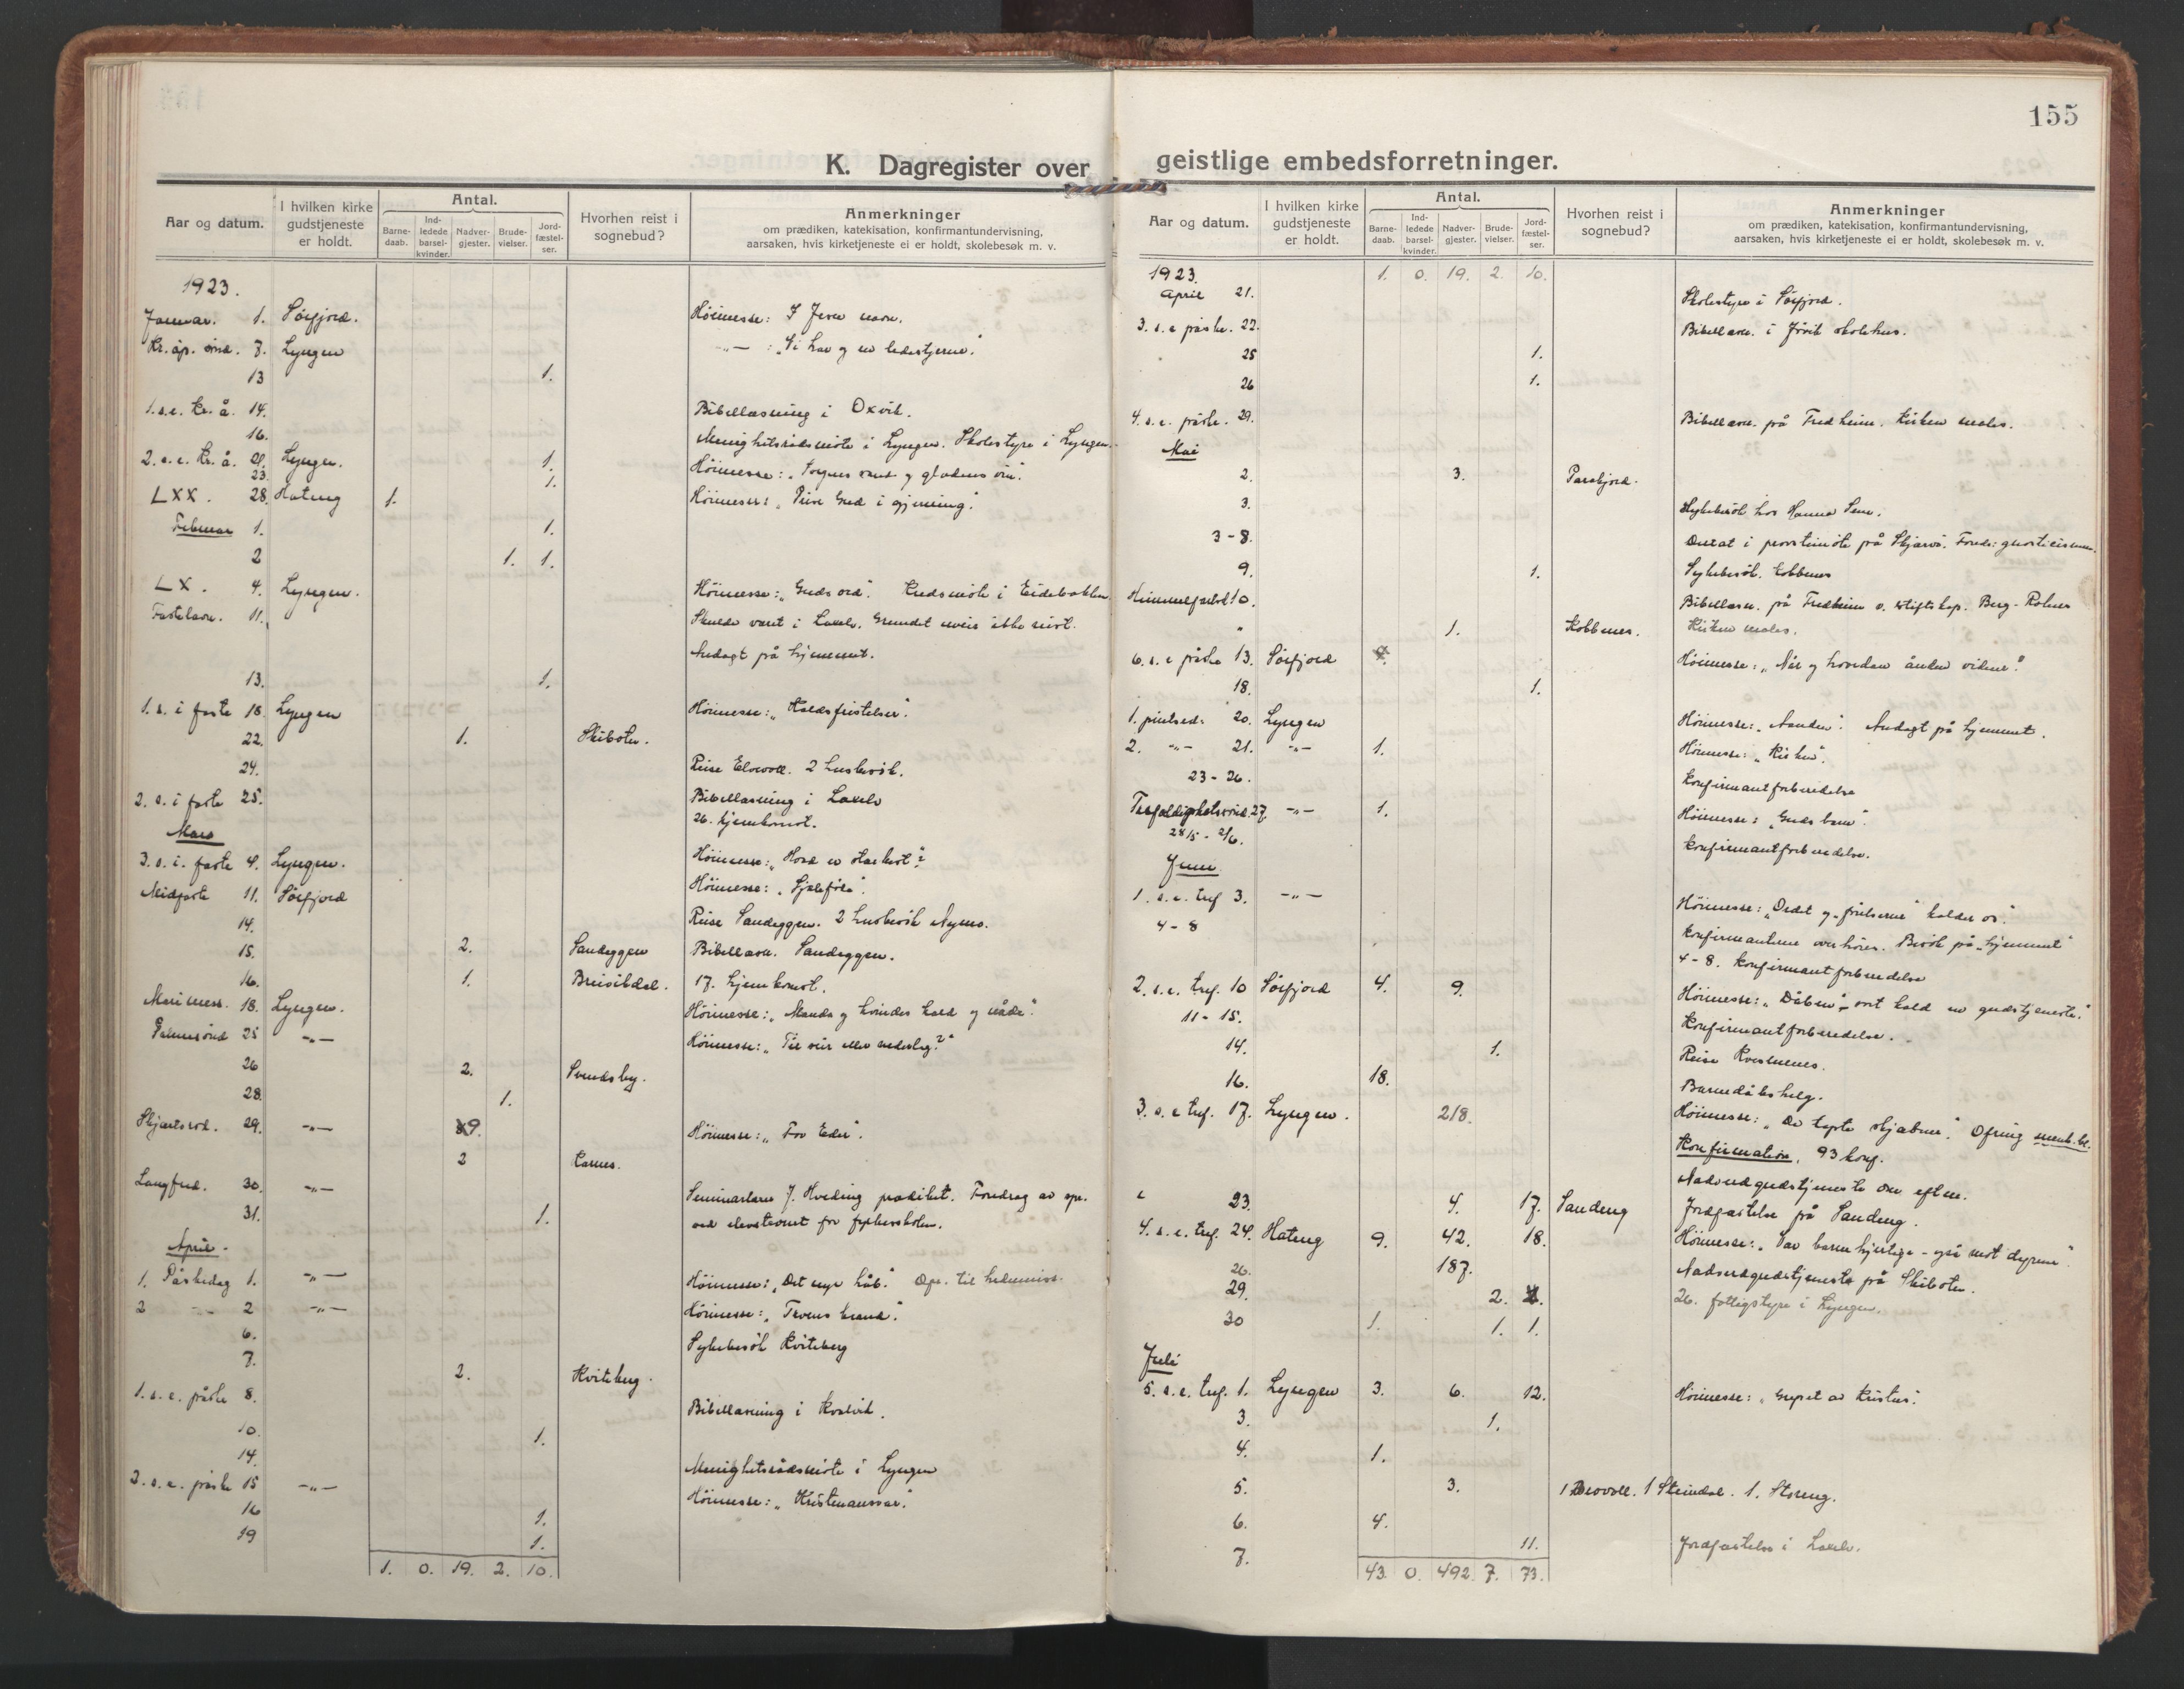 155
K. Dagregister over geistlige embedsforretninger.
Aar og datum. I hvilken kirke gudstjeneste er holdt. Antal. Barne-daab. Ind-ledede barsel-kvinder. Nadver-gjester. Brude-vielser. Jord-fæstel-ser. Hvorhen reist i sognebud? Anmerkninger om prædiken, katekisation, konfirmantundervisning, aarsaken, hvis kirketjeneste ei er holdt, skolebesøk m. v.
1923.
Januar. 1. Sörfjord. Höimesse: I Jesu navn.
Kr. åp. sönd. 7. Lyngen -"- : "Vi har og en ledestjerne."
13 1.
1. s. e. Kr. å. 14. Bibellæsning i Oxvik.
16. Menighetsrådsmöte i Lyngen. Skolestyre i Lyngen.
2. s. e. Kr. å. 21. Lyngen. 1. Höimesse: "Sorgens vand og glædens vin."
23. 1.
LXX. 28. Hateng 1. Höimesse: "Prise Gud i gjerning."
Februar 1. 1.
2 1. 1.
LX. 4. Lyngen. Höimesse: "Guds ord". Kredsmöte i Eidebakken
Fastelavn. 11. Skulde været i Lakselv. Grundet uveir ikke reist.
Andagt på hjemmet.
13. 1.
1. s. i faste 18. Lyngen Höimesse: "Kaldsfristelser".
22. 1. Skibotn.
24. Reise Elvevoll. 2 husbesök.
2. s. i faste 25. Bibellæsning i Lakselv
26. hjemkomst.
Mars
3. s. i. faste 4. Lyngen. Höimesse: "Hvad er stærkest"?
Midfaste 11. Sörfjord Höimesse: "Sjeleföde".
14. Reise Sandeggen. 2 husbesök Nymo.
15. 2. Sandeggen Bibellæsn. Sandeggen.
16. 1. Breisikdal. 17. hjemkomst.
Mari mess. 18. Lyngen. Höimesse: "Maria og kvindes kald og nåde."
Palmesönd 25 -"- Höimesse: "Til seir eller nederlag?"
26 2. Svendsby.
28. 1.
Skjærtorsd. 29. -"- 9. Höimesse: "For Eder".
2 Karnes.
Langfred. 30. -"- Seminarlærer J. Hveding prædiket. Foredrag av sgr.
31. 1. ved elevstevnet for fylkesskolen.
April.
1. Påskedag 1. -"- Höimesse: "Det nye håb." Opr. til hedemiss.
2 -"- 2 -"- Höimesse: "Troens brand".
6. Sykebesök Kviteberg
7. 2. Kviteberg.
1. s. e. påske 8. Bibellæsning i Kvalvik.
10. 1.
14. Menighetsrådsmöte i Lyngen
2. s. e. påske 15 -"- Höimesse: "Kristenansvar."
16 1.
19 1.
1. 0. 19. 2. 10.
Aar og datum. I hvilken kirke gudstjeneste er holdt. Antal. Barne-daab. Ind-ledede barsel-kvinder. Nadver-gjester. Brude-vielser. Jord-fæstel-ser. Hvorhen reist i sognebud? Anmerkninger om prædiken, katekisation, konfirmantundervisning, aarsaken, hvis kirketjeneste ei er holdt, skolebesøk m. v.
1923. 1. 0. 19. 2. 10.
April 21. Skolestyre i Sörfjord.
3. s. e påske. 22. Bibellæsn. i Jövik skolehus.
25 1.
26 1.
4. s. e. påske. 29. Bibellæsn. på Fredheim. Kirken males.
Mai
2. 3. Parasfjord.
3. Sykebesök hos Hanna Sem.
3-8. Deltat i provstimöte på Skjærvö.
9. 1. Sykebesök. Kobbenes
Himmelfartsd 10. Bibellæsn. på Fredheim v. stiftskap. Berg-Rolnes
" 1. Kobbenes. Kirken males.
6. s. e påske 13. Sörfjord Höimesse: "Når og hvordan ånden vidner."
18. 1.
1. pintsed. 20. Lyngen Höimesse: "Aanden". Andagt på hjemmet.
2. -"- 21. -"- 1. Höimesse: "Kirken".
23-26. Konfirmantforberedelse
Trefoldighetssönd. 27. -"- 1. Höimesse: "Guds barn".
28/5 - 2/6. Konfirmantforberedelse.
Juni
1. s. e. tref 3. -"- Höimesse: "Ordet og frelserne kalder os".
4-8 Konfirmanterne overhöres. Besök på "hjemmet"
4-8. Konfirmantforberedelse
2. s. e. tref. 10 Sörfjord 4. 9. Höimesse: "Dåben", vort kald en gudstjeneste."
11-15. Konfirmantforberedelse.
14. 1. Reise Kvesmenes.
16. 18. Barnedåbshelg.
3. s. e tref. 17. Lyngen. 218. Höimesse: "De tapte skjæbner". Ofring
Konfirmation. 93 konf.
Nadverdgudstjeneste om efterm.
23. 4. 17. Sandeng Jordfæstelse på Sandeng.
4. s. e. tref. 24. Hateng 9. 42. 18. Höimesse: "Vær barmhjertige - også mot dyrene".
26. 187. Nadverdgudstjeneste på Skibotn.
29. 2. 26. fattigstyre i Lyngen.
30 1. 1. 1.
Juli
5. s. e. tref. 1. Lyngen 3. 6. 12. Höimesse: "Grepet av Kristus".
3. 1.
4. 1.
5. 3. 1 Steindal. 1. Storeng.
6. 4.
7. 11. Jordfæstelse i Lakselv.
43. 0. 492. 7. 73.